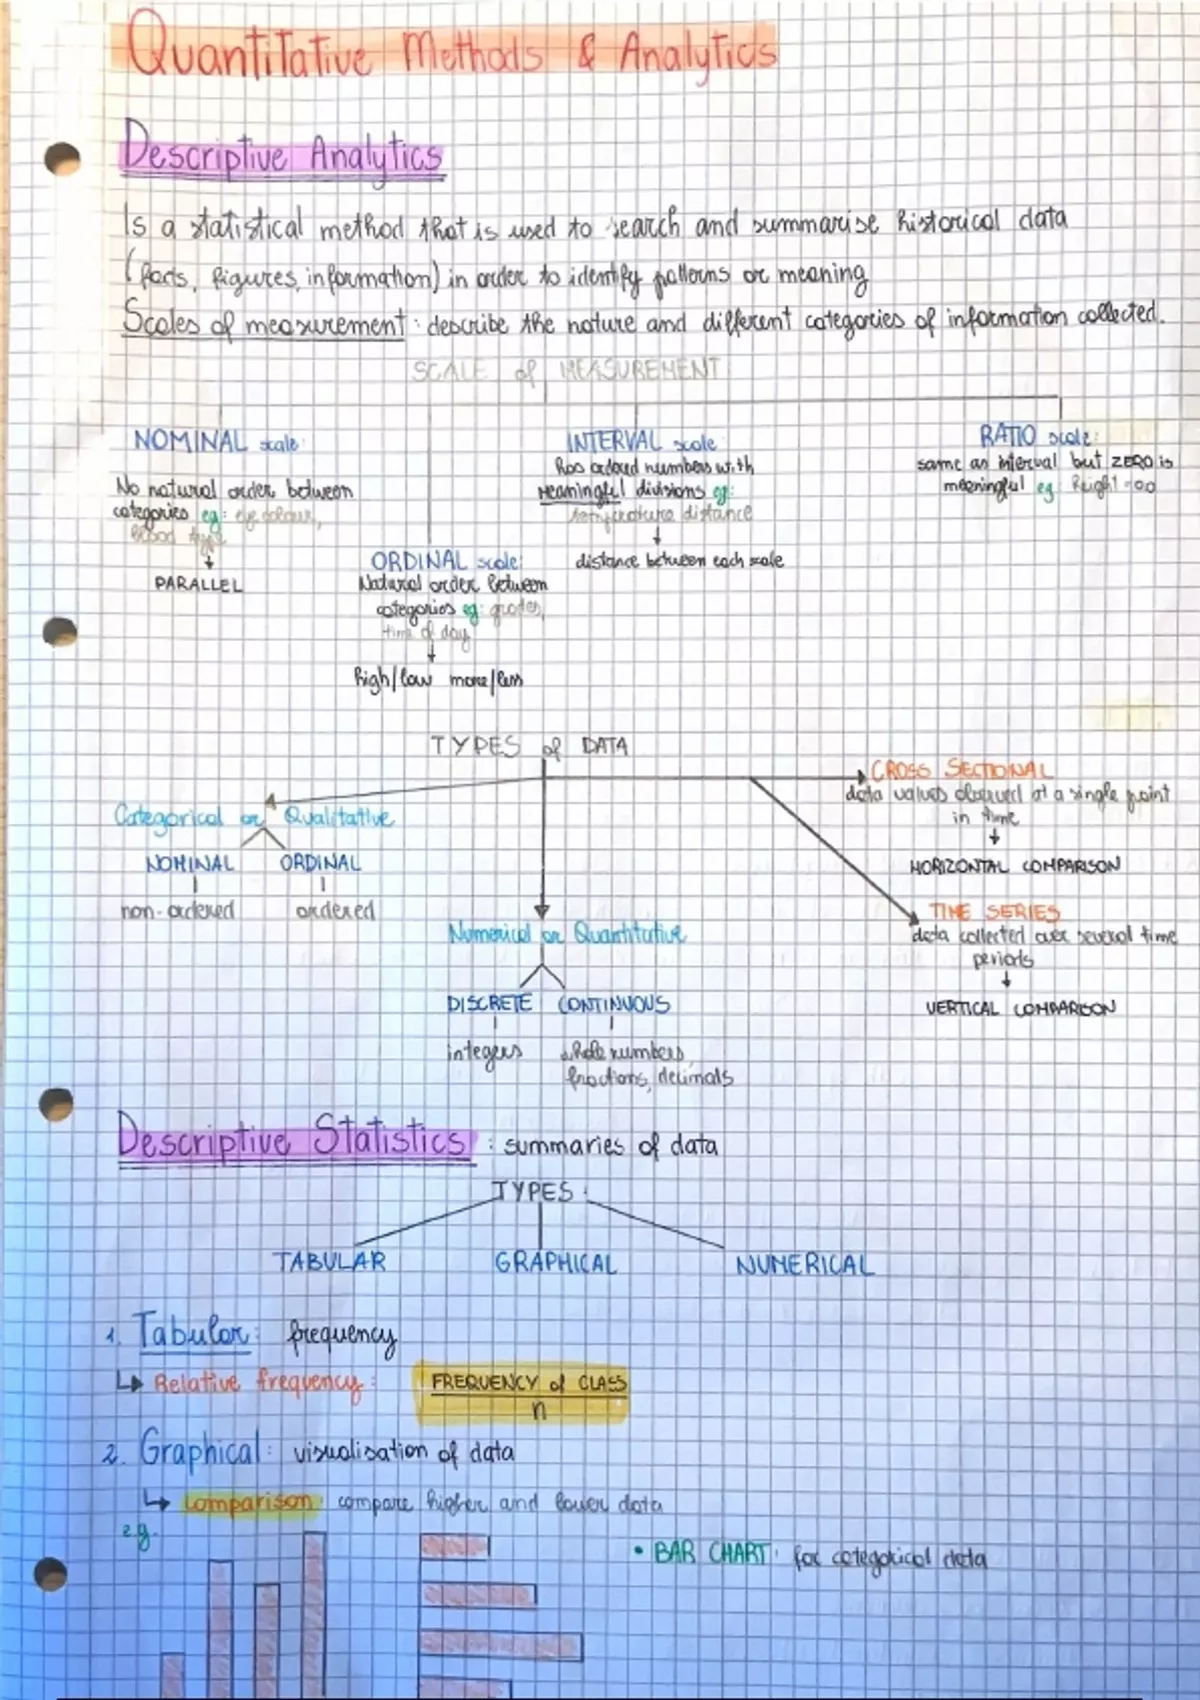 Quantitative Methods & Analytics
Descriptive Analytics
Is a statistical method that is used to search and summarise historical data
(facts, figures, information) in order to identify patterns or meaning
Scales of measurement: describe the nature and different categories of information collected.
SCALE of MEASUREMENT
NOMINAL scale:
No natural order between
categories eg: eye colour,
blood type
↓
PARALLEL
ORDINAL scale:
Natural order between
categories eg: grades,
time of day
↓
high/low more/less
INTERVAL scale:
has ordered numbers with
meaningful divisions eg:
temperature distance
↓
distance between each scale
RATIO scale:
same as interval but ZERO is
meaningful eg: height
TYPES of DATA
Categorical or Qualitative
NOMINAL ORDINAL
non-ordered ordered
Numerical or Quantitative
DISCRETE CONTINUOUS
integers whole numbers,
fractions, decimals
CROSS SECTIONAL
data values observed at a single point
in time
↓
HORIZONTAL COMPARISON
TIME SERIES
data collected over several time
periods
↓
VERTICAL COMPARISON
Descriptive Statistics: summaries of data
TYPES:
TABULAR GRAPHICAL NUMERICAL
1. Tabular: frequency
↳ Relative frequency: FREQUENCY of CLASS
n
2. Graphical: visualisation of data
↳ comparison: compare higher and lower data
e.g.
• BAR CHART: for categorical data